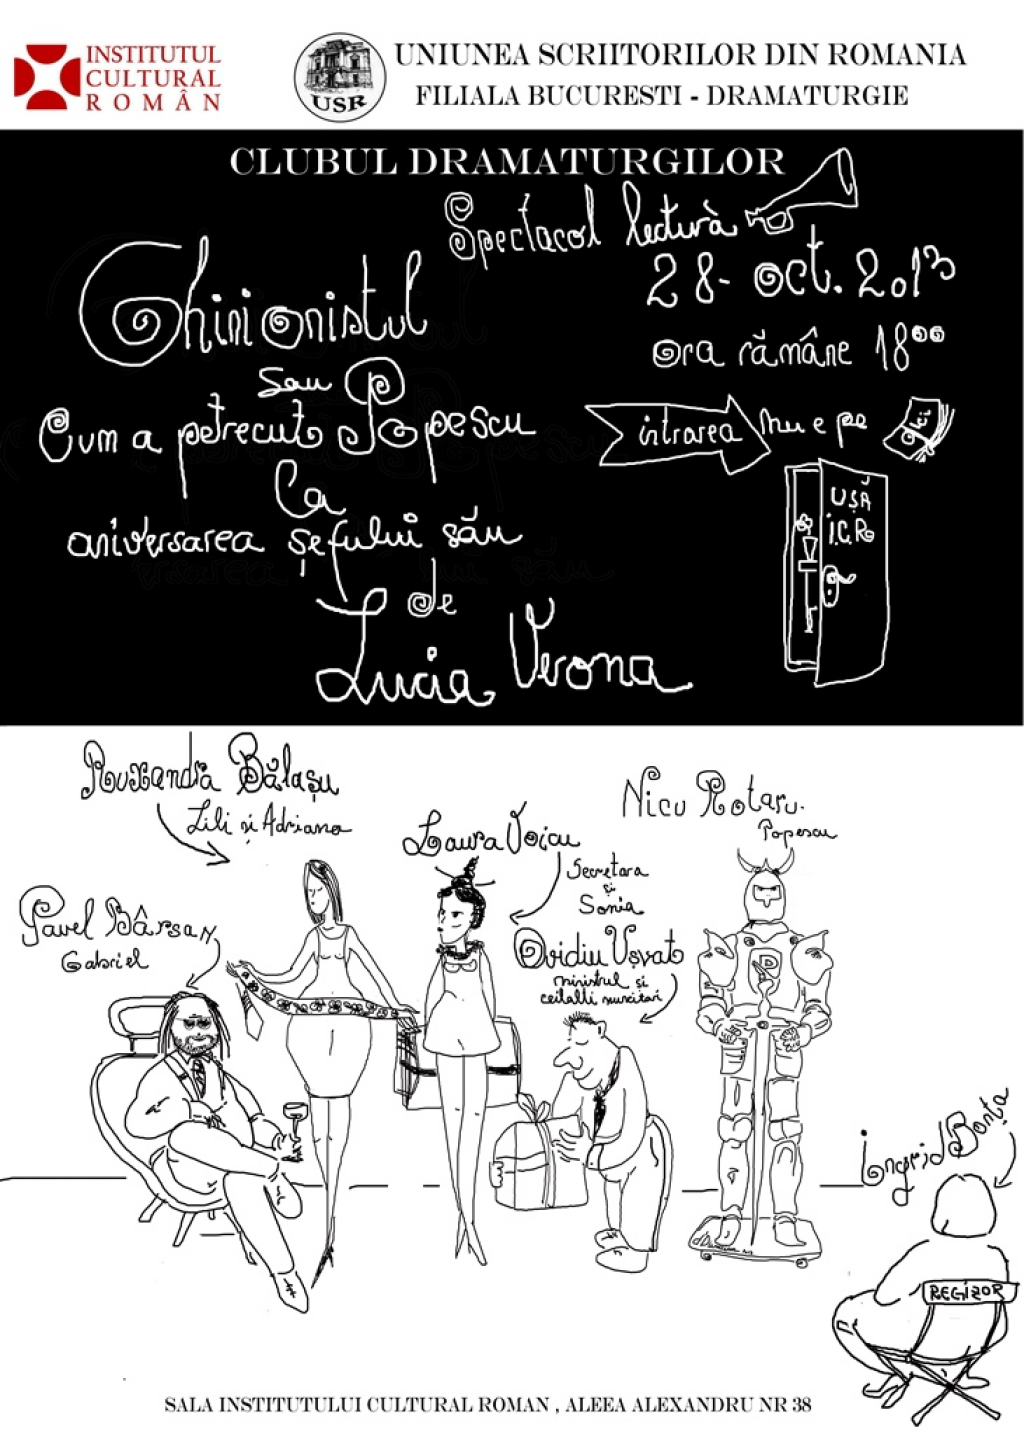 INSTITUTUL
CULTURAL
ROMÂN
USR
UNIUNEA SCRIITORILOR DIN ROMANIA
FILIALA BUCURESTI - DRAMATURGIE
CLUBUL DRAMATURGILOR
Spectacol lectură
28 oct. 2013
ora rămâne 18⁰⁰
Ghinionistul
sau
Cum a petrecut Popescu
La
aniversarea șefului său
de
Lucia Verona
intrarea nu e pe
UȘĂ
I.C.R.
Ruxandra Bălașu
Lili și Adriana
Laura Voicu
Secretara
și
Sonia
Nicu Rotaru
Popescu
Pavel Bârsan
Gabriel
Ovidiu Ușvat
ministrul și
ceilalți muritori
D
Ingrid Bonța
REGIZOR
SALA INSTITUTULUI CULTURAL ROMAN , ALEEA ALEXANDRU NR 38